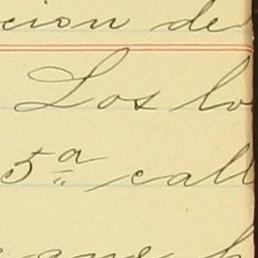 cion de
Los lo
5ª call